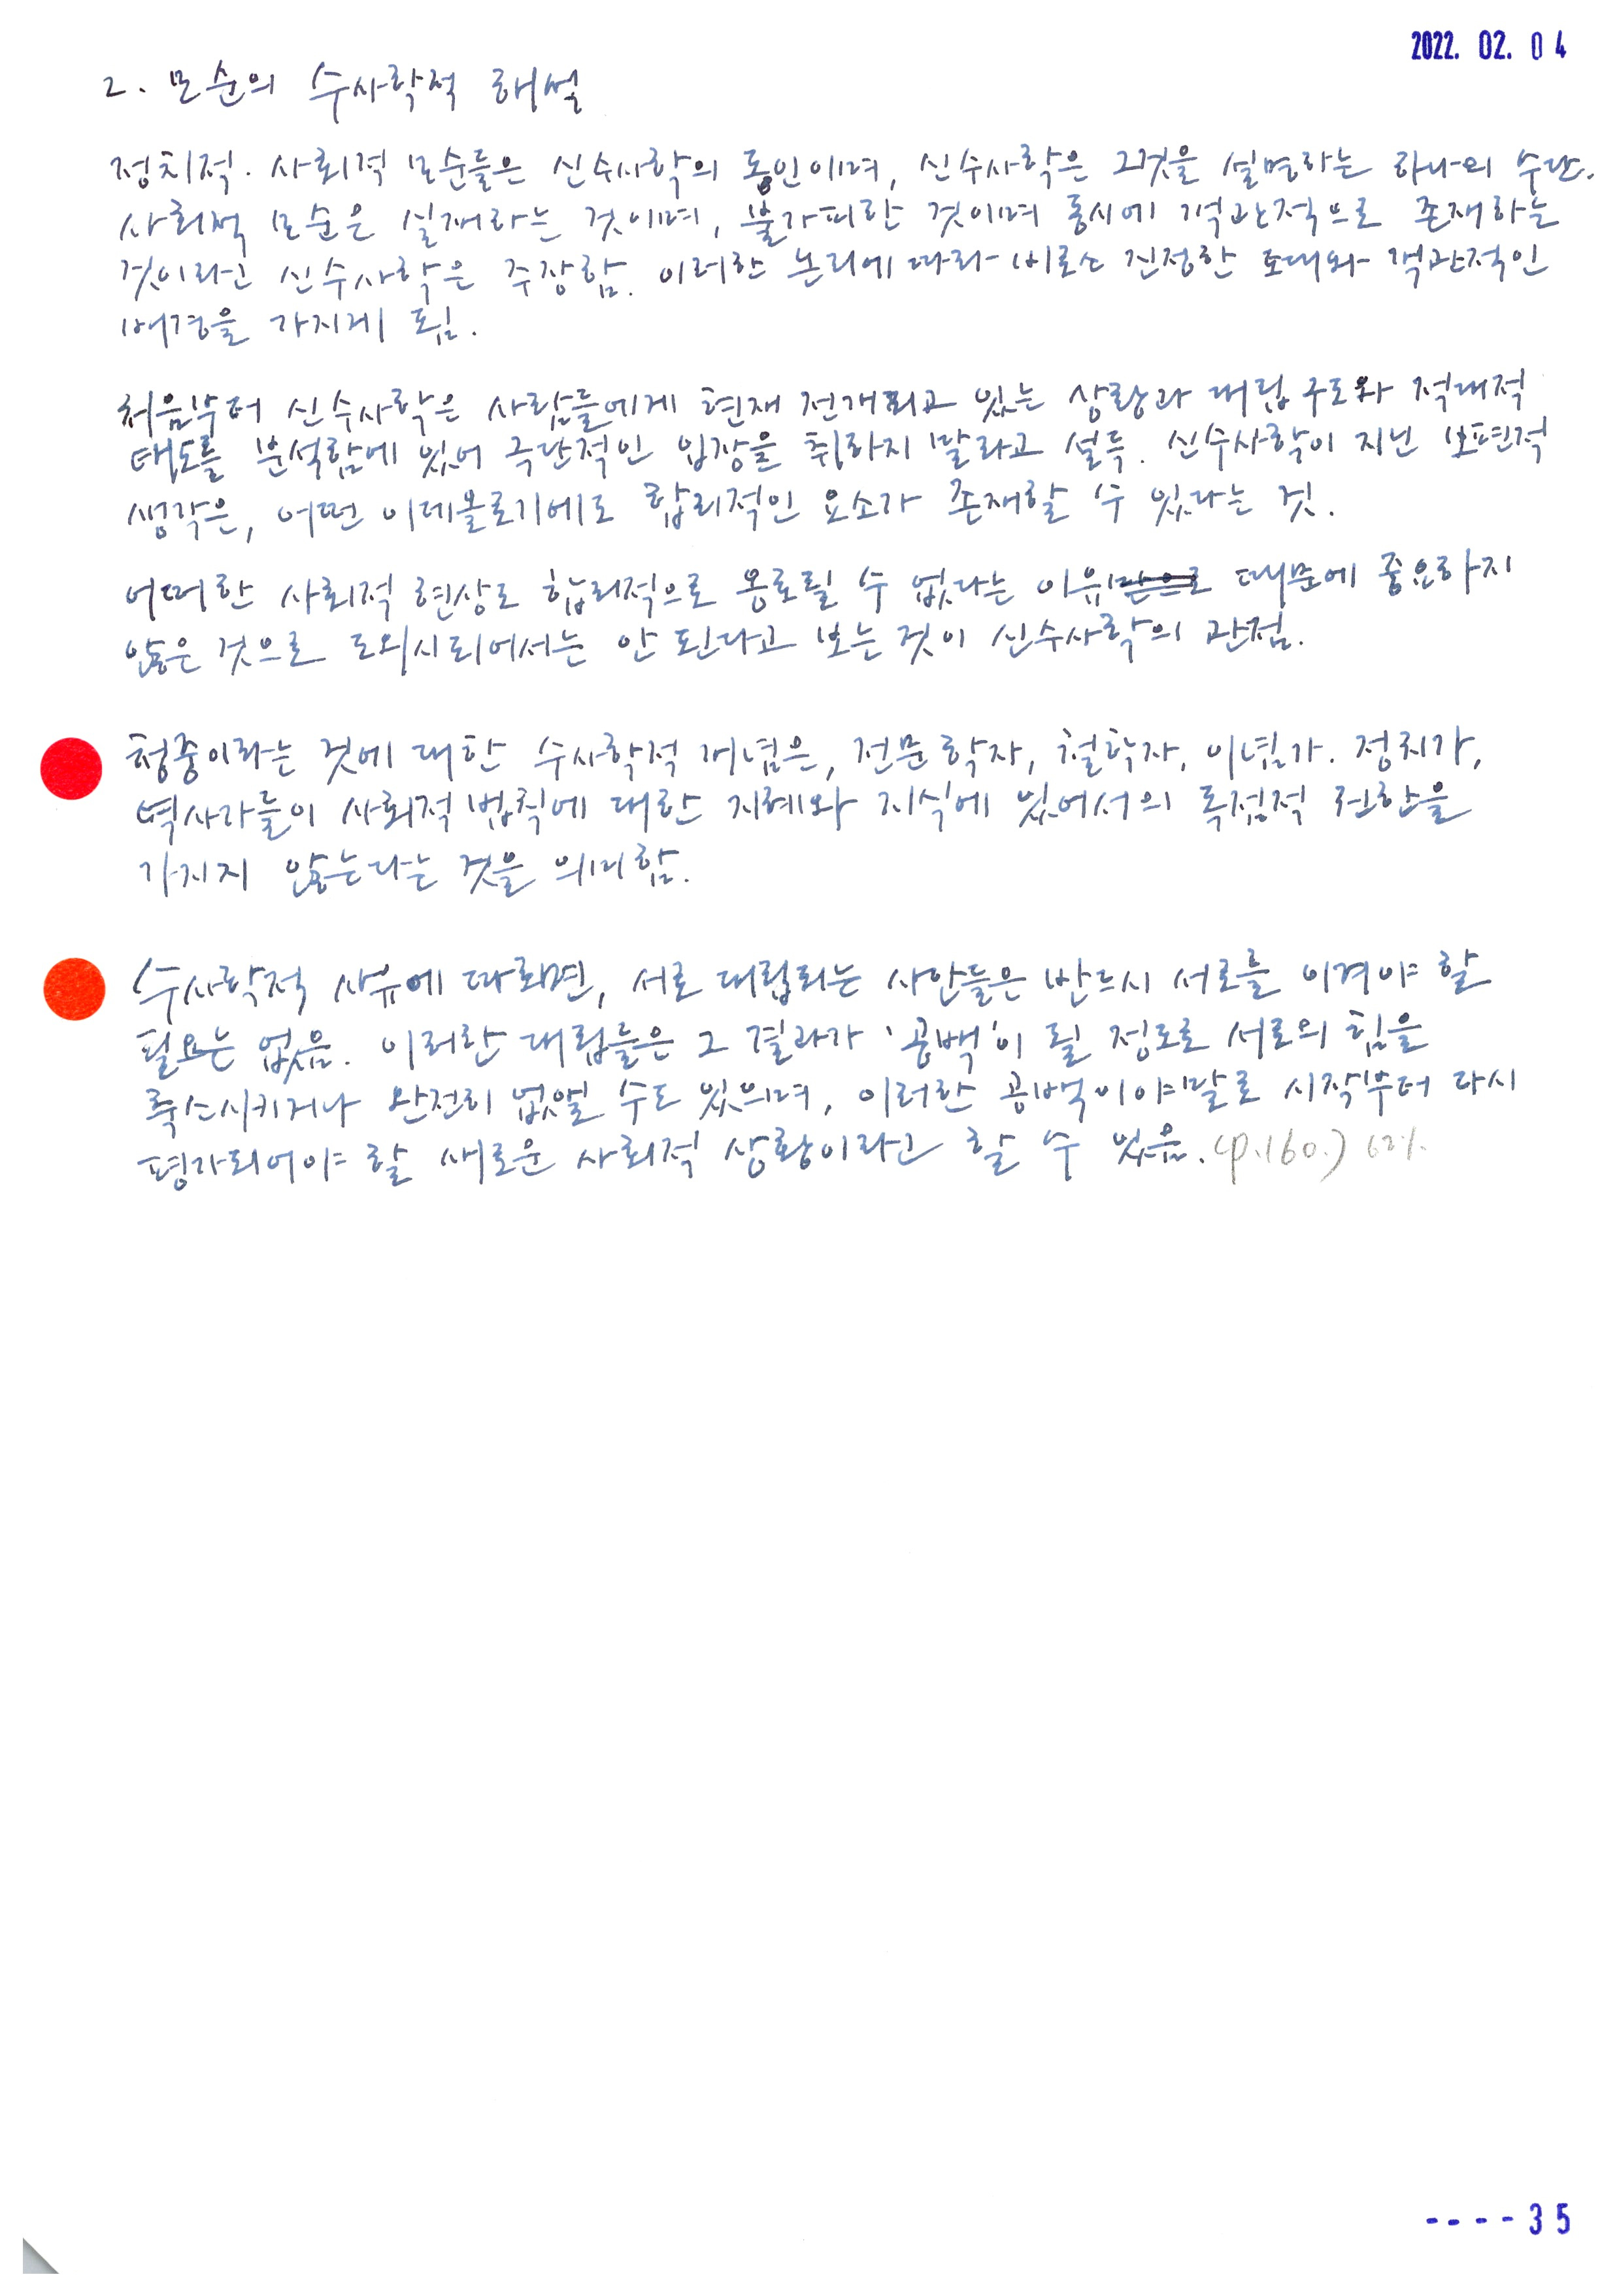 2022. 02. 04
2. 모순의 수사학적 해석
정치적. 사회적 모순들은 신수사학의 동인이며, 신수사학은 그것을 설명하는 하나의 수단.
사회적 모순은 실재하는 것이며, 불가피한 것이며 동시에 객관적으로 존재하는
것이라고 신수사학은 주장함. 이러한 논리에 따라 비로소 진정한 토대와 객관적인
배경을 가지게 됨.
처음부터 신수사학은 사람들에게 현재 전개되고 있는 상황과 대립 구도와 적대적
태도를 분석함에 있어 극단적인 입장을 취하지 말라고 설득. 신수사학이 지닌 보편적
생각은, 어떤 이데올로기에도 합리적인 요소가 존재할 수 있다는 것.
어떠한 사회적 현상도 합리적으로 옹호될 수 없다는 이유 때문에 중요하지
않은 것으로 도외시되어서는 안 된다고 보는 것이 신수사학의 관점.
청중이라는 것에 대한 수사학적 개념은, 전문학자, 철학자, 이념가. 정치가,
역사가들이 사회적 법칙에 대한 지혜와 지식에 있어서의 독점적 권한을
가지지 않는다는 것을 의미함.
수사학적 사유에 따르면, 서로 대립되는 사안들은 반드시 서로를 이겨야 할
필요는 없음. 이러한 대립들은 그 결과가 '공백'이 될 정도로 서로의 힘을
축소시키거나 완전히 없앨 수도 있으며, 이러한 공백이야말로 시작부터 다시
평가되어야 할 새로운 사회적 상황이라고 할 수 있음. (p.160.) 62%
----35